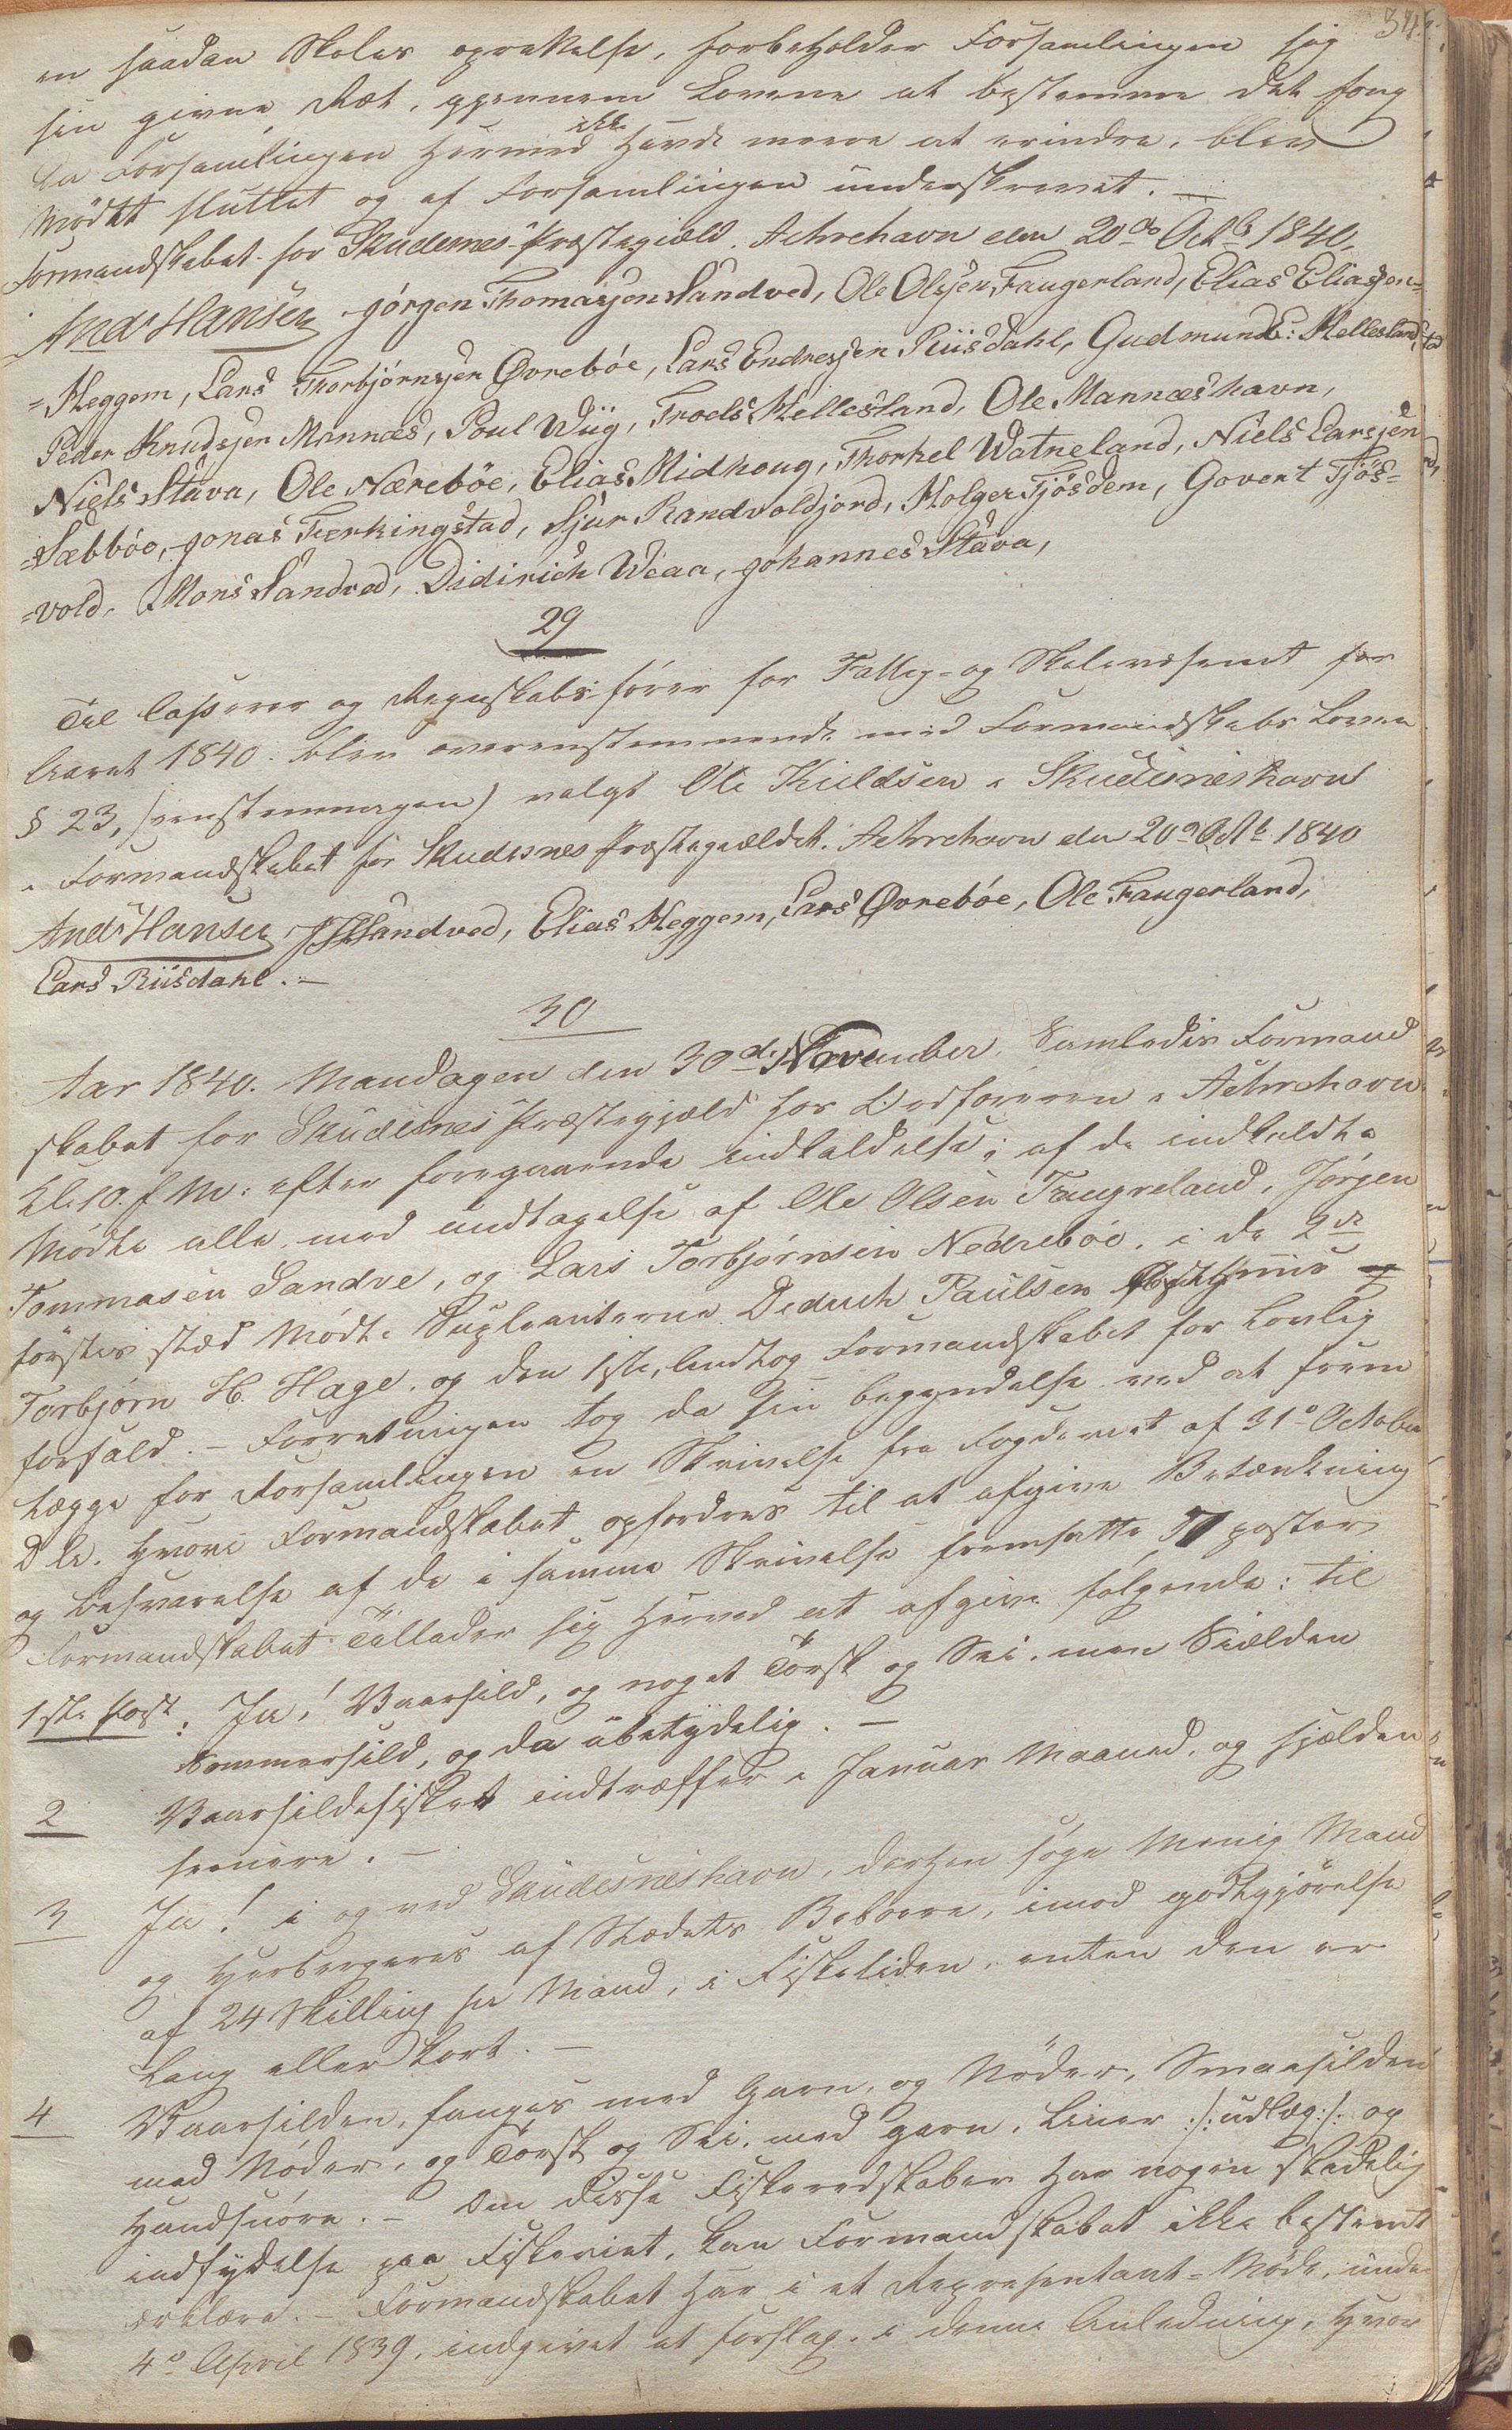 34
en saadan Skoles oprettelse, forbeholder Forsamlingen sig
sin givne Ræt, gjennem Lovene at bestemme det forn
Da Forsamlingen hermed ikke havde mere at erindre, blev
Mødet sluttet og af Forsamlingen underskrevet. —
Formandskabet for Skudesnes Præstegield. Aehrehavn den 20de Octb 1840.
Andr Hansen Jørgen Thomassen Sandved, Ole Olsen, Faugerland, Elias Eliassen=
=Heggem, Lars Thorbjørnsen Øvrebøe, Lars Endresen Riisdahl, Gudmund E: Hellesland,
Peder Knudsen Mannæs, Poul Wiig, Troels Hellesland, Ole Mannæshavn,
Niels Stava, Ole Nærebøe, Elias Midhoug, Thorkel Watneland, Niels Larsen
=Sæbbøe, Jonas Ferkingstad, Sjur Randvoldjord, Holger Tjösdem, Govert Tjös=
=vold, Mons Sandved, Didirich Weaa, Johannes Stava,
29
Til Casserer og Regnskabsfører for Fattig- og Skolevæsenet for
Aaret 1840. blev overensstemmende med Formandskabs Loven
§ 23, (eenstemmigen) valgt Ole Kieldsen i Skudesneshavn
i Formandskabet for Skudesnes Præstegieldet. Aehrehavn den 20de Octb 1840
Andr Hansen JTSandved, Elias Heggem, Lars Øvrebøe, Ole Faugerland,
Lars Riisdahl. —
30
Aar 1840. Mandagen den 30d. November. Samledes Formand
skabet for Skudesnes Præstegjæld hos Ordføreren i Aehrehavn
Kl. 10. f M: efter foregaaende indkaldelse; af de indkaldte
Mødte alle med undtagelse af Ole Olsen Faugreland, Jørgen
Tommasen Sandve, og Lars Torbjørnsen Nedrebøe, i de 2de
førstes sted Mødte Supleanterne Dedrich Paulsen og
Torbjørn H. Hage. og den 1ste, Formandskabet for Lovlig
forfald. — Forretningen tog da sin begyndelse ved at frem
lægge for Forsamlingen en Skrivelse fra Fogderiet af 31e October
D A. hvori Formandskabet opfordres til at afgive Betænkning
og besvarelse af de i samme Skrivelse fremsatte poster
Formandskabet Tillader sig herved at afgive følgende: til
1ste Post: Ja! Vaarsild, og noget Torsk og Sei. men Siælden
Sommersild, og da ubetydelig. —
2 Vaarsildefisket indtræffer i Januar Maaned, og sjælden
senere. —
3 Ja! i og ved Skudesneshavn, derhen søge Menig Mand
og herbergeres af Stædets Beboere, imod godtgjörelse
af 24 Skilling pr Mand, i Fisketiden, enten den er
Lang eller kort. —
4 Vaarsilden, fanges med Garn, og Nöder, Smaasilden
med Nöder, og Torsk og Sei, med garn, Liner :/:udlæg:/: og
Handsnöre. — Om disse Fiskeredskaber har nogen skadelig
indflydelse paa Fiskeriet, kan Formandskabet ikke bestemt
erklære. — Formandskabet har i et Representant-Möde, under
4e April 1839, indgivet et forslag. i denne Anledning, hvor